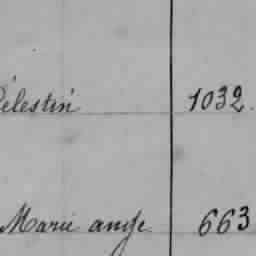 Célestin 1032.
Marie ange 663